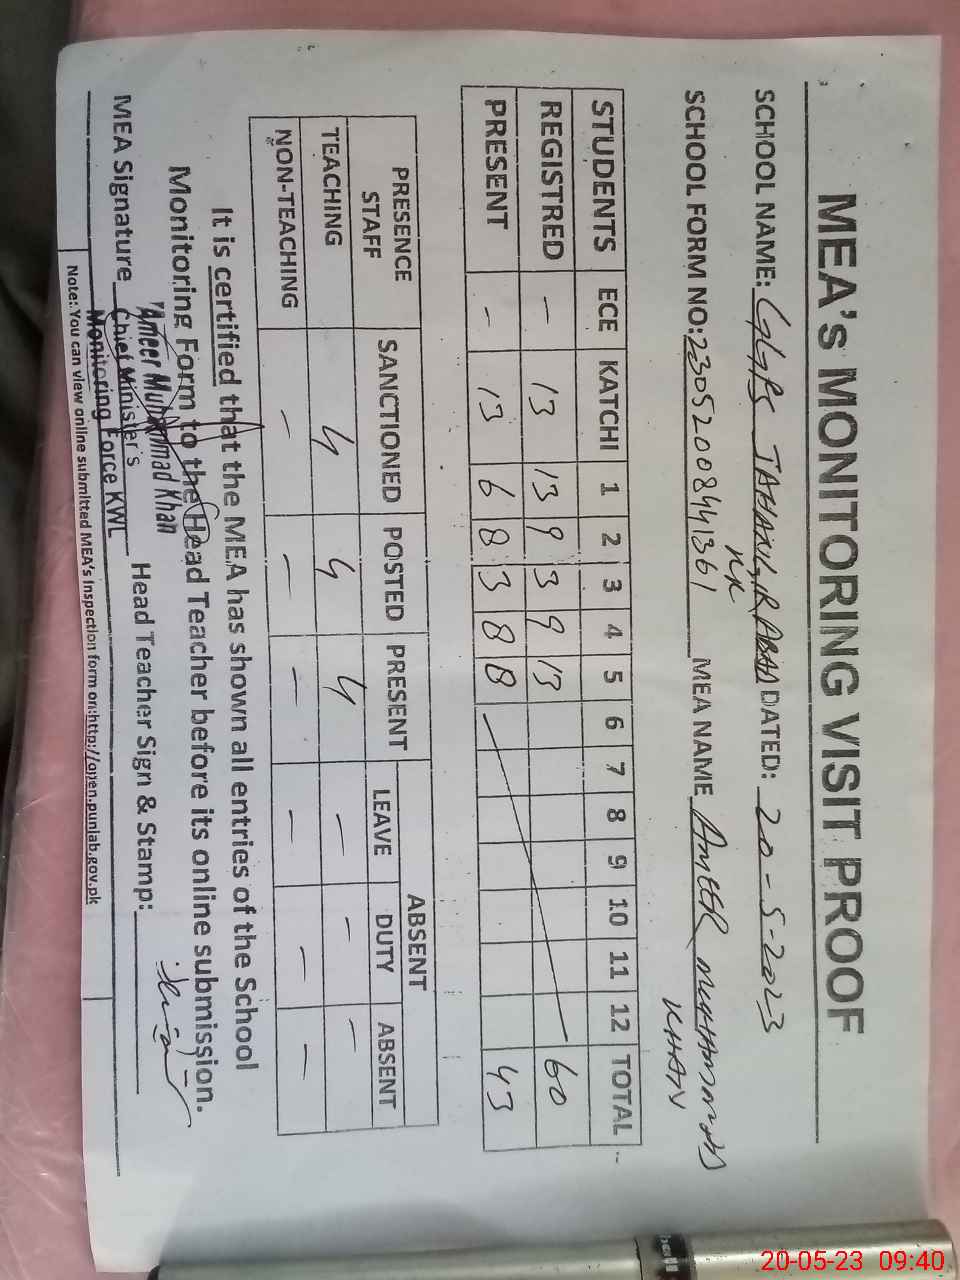 MEA's MONITORING VISIT PROOF
SCHOOL NAME: GGPS JAHANGIRABAD DATED: 20-5-2023
NK
SCHOOL FORM NO: 23052008441361 MEA NAME AMEER MUHAMMAD
KHAN
STUDENTS ECE KATCHI 1 2 3 4 5 6 7 8 9 10 11 12 TOTAL
REGISTRED - 13 13 9 3 9 13 60
PRESENT - 13 6 8 3 8 8 43
PRESENCE STAFF SANCTIONED POSTED PRESENT ABSENT
LEAVE DUTY ABSENT
TEACHING 4 4 4 - - -
NON-TEACHING - - - - - -
It is certified that the MEA has shown all entries of the School
Monitoring Form to the Head Teacher before its online submission.
Ameer Muhammad Khan
MEA Signature Chief Minister's Head Teacher Sign & Stamp:
Monitoring Force KWL
Note: You can view online submitted MEA's inspection form on:http://open.punlab.gov.pk
20-05-23 09:40